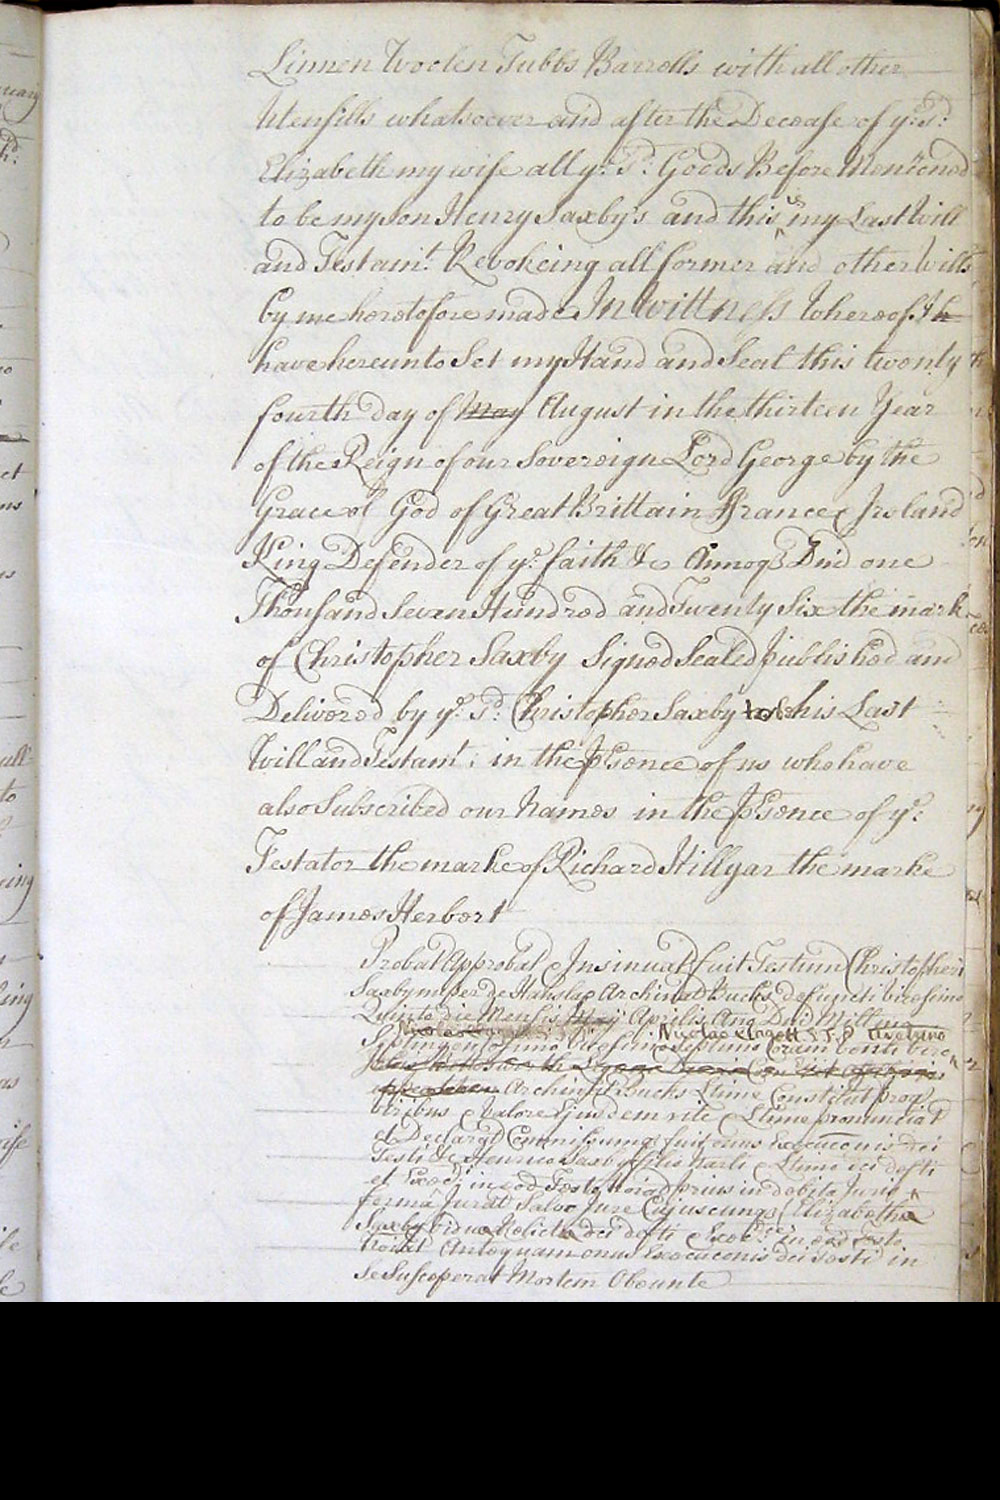 Linnen Woolen Tubbs Barrells with all other
Utensills whatsoever and after the Decease of yᵉ sᵈ:
Elizabeth my wife all yᵉ sᵈ: Goods Before Mentioned
to be my son Henry Saxby's and this is my Last Will
and Testamᵗ. Revokeing all former and other Wills
by me heretofore made In Wittness Whereof I h
have hereunto Set my Hand and Seal this twenty
fourth day of May August in the thirteen Year
of the Reign of our Sovereign Lord George by the
Grace of God of Great Brittain France & Ireland
King Defender of yᵉ faith &c Annoq Dnd one
Thousand Seven Hundred and Twenty Six the mark
of Christopher Saxby Signed Sealed published and
Delivered by yᵉ sᵈ: Christopher Saxby to be his Last
Will and Testamᵗ: in the Psence of us who have
also Subscribed our Names in the Psence of yᵉ:
Testator the marke of Richard Hillyar the marke
of James Herbert
Probat Approbat & Insinuat fuit Testum Christopheri
Saxby nuper de Hanslap Archinat Bucks defuncti vicesimo
Quinto die Mensis May Aprilis Ano Dni Millmo
Nicolao Clagett S.T.P.
Septingen vicesimo Septimo Coram venli viro
Archinat Bucks Ltime Constitut proq
viribus & valore Ejusdem rite & Ltime pronunciat
et Declarat Commissumq fuit onus Execuconis dci
Testi &c Henrico Saxby filio nãrli & Ltimo dci defti
et Execri in eod Testo noiat prius in debita Juris
forma Jurat Salvo Jure Cujuscunq Elizabetha
Saxby vidua Relicta dci defti & Execᶜᵉ in eod testo
Noiat Antequam onus Execuconis dci testi in
se Susceperat Mortem Obeunte